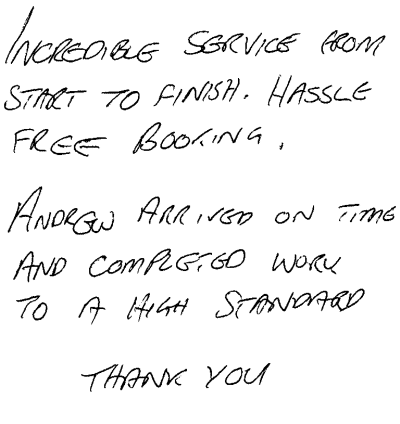 INCREDIBLE SERVICE FROM
START TO FINISH. HASSLE
FREE BOOKING.
ANDREW ARRIVED ON TIME
AND COMPLETED WORK
TO A HIGH STANDARD
THANK YOU